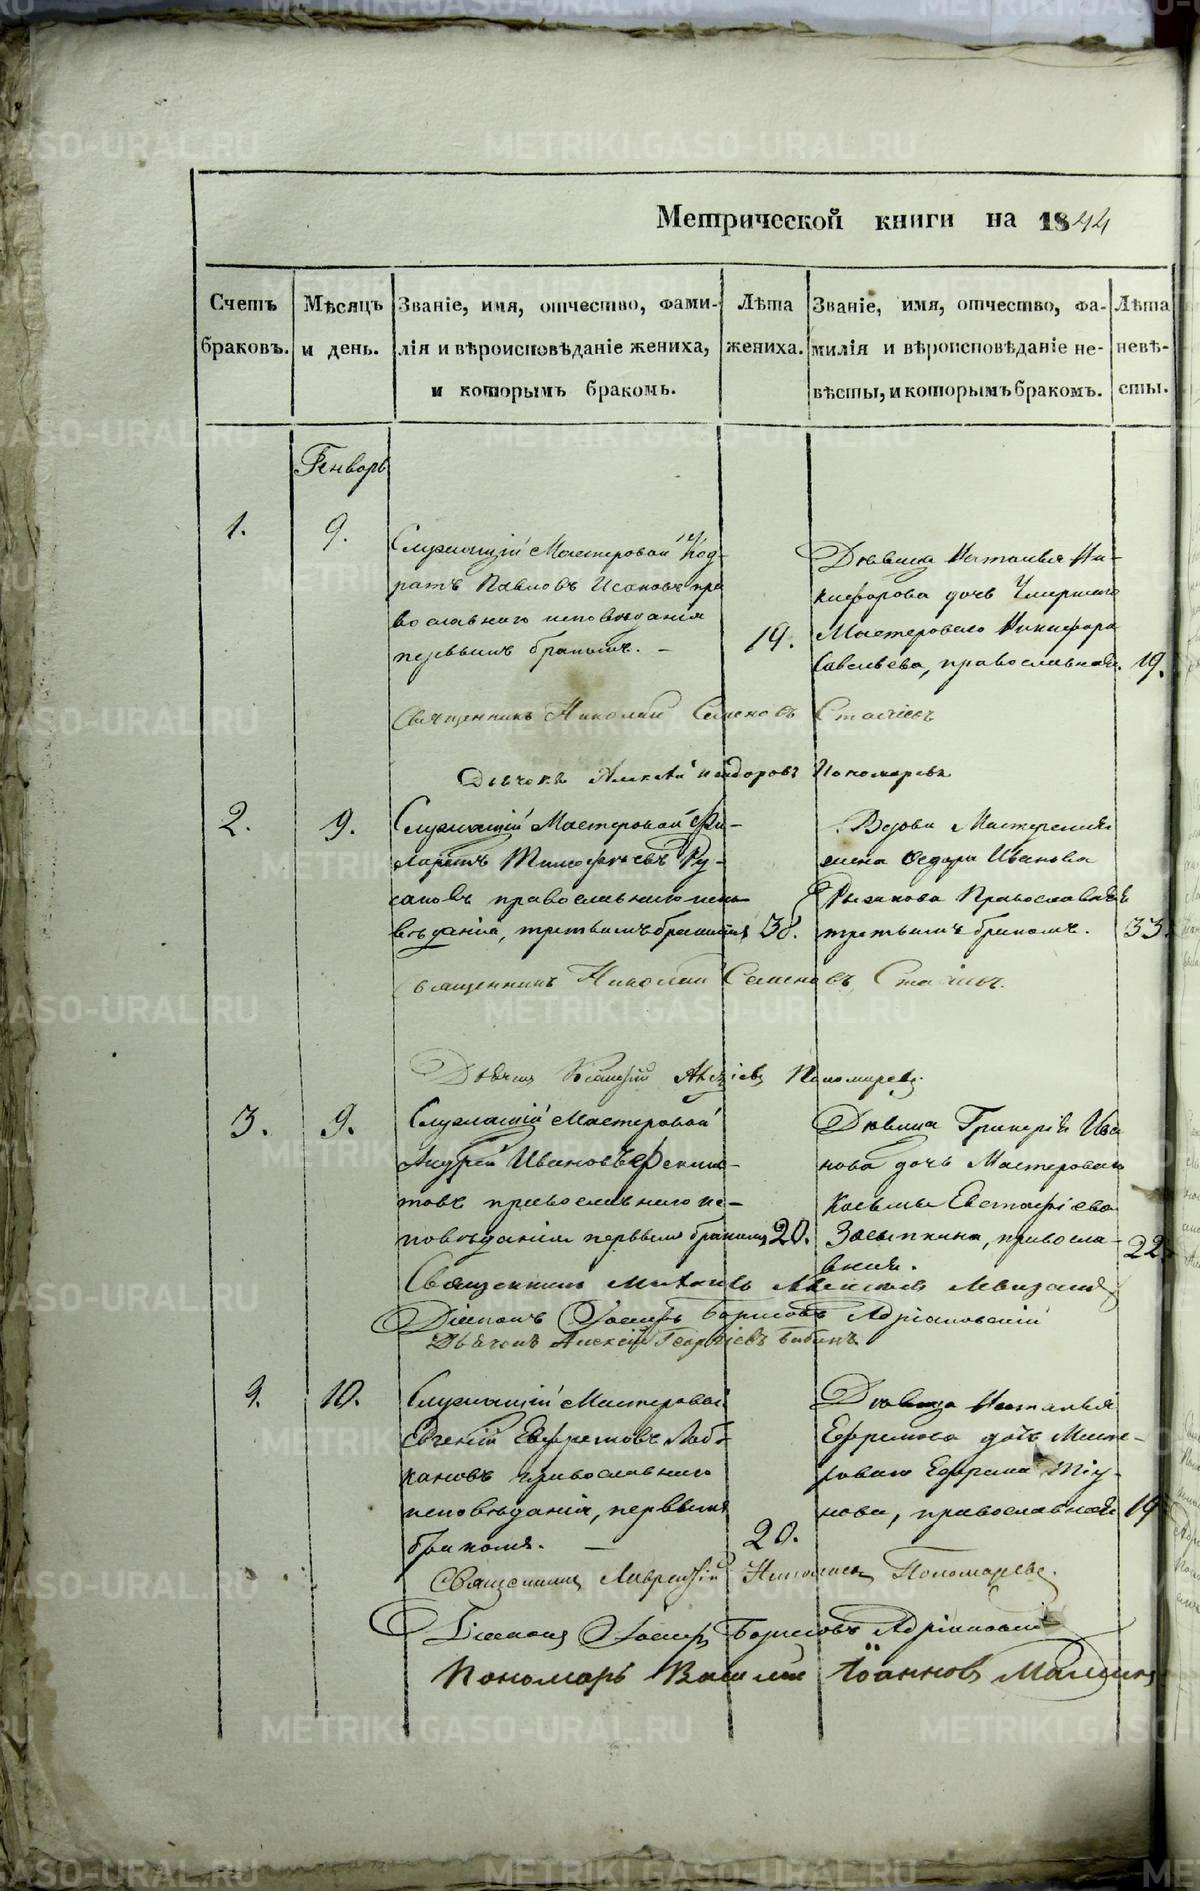 Метрической книги на 1844
Счетъ браковъ.
Мѣсяцъ и день.
Званіе, имя, отчество, фами-
лія и вѣроисповѣданіе жениха,
и которымъ бракомъ.
Лѣта жениха.
Званіе, имя, отчество, фа-
милія и вѣроисповѣданіе не-
вѣсты, и которымъ бракомъ.
Лѣта невѣ-
сты.
Генварь
1.
9.
Служащій Мастеровой Код-
ратъ Павловъ Исаковъ пра
вославнаго исповѣданія
первымъ бракомъ. –
19.
Дѣвица Наталья Ни-
кифорова дочь Умершаго
Мастероваго Никифора
Савельева, православная.
19.
Священникъ Николай Семеновъ
Дьячекъ Алексѣй Пономаревъ
2.
9.
Служащій Мастеровой Фи-
ларетъ Тимофеевъ Ру-
саковъ православнаго испо
вѣданія, третьимъ бракомъ
38.
Вдова Мастерская
жена Федора Иванова
Рызанова Православная
третьимъ бракомъ.
33.
Священникъ Николай Семеновъ
Дьячекъ Пономаревъ
3.
9.
Служащій Мастеровой
Андрей Ивановъ
товъ православнаго ис-
повѣданія первымъ бракомъ
20.
Дѣвица
нова дочь Мастероваго
Касьяна Евстафіева
Засыпкина, правосла-
вная.
22.
Священникъ Михаилъ Левицкій
Діаконъ Іосифъ Борисовъ Адріановскій
Дьячекъ Алексѣй Георгіевъ Бабинъ
4.
10.
Служащій Мастеровой
Евгеній Евфремовъ Лаб-
каковъ православнаго
исповѣданія, первымъ
бракомъ. –
20.
Дѣвица Наталья
Ефремова дочь Масте-
роваго Ефрема Тіу-
нова, православная
19
Священникъ Лаврентій Николаевъ Пономаревъ.
Діаконъ Іосифъ Борисовъ Адріановскій
Пономарь Василій Іоанновъ
METRIKI.GASO-URAL.RU